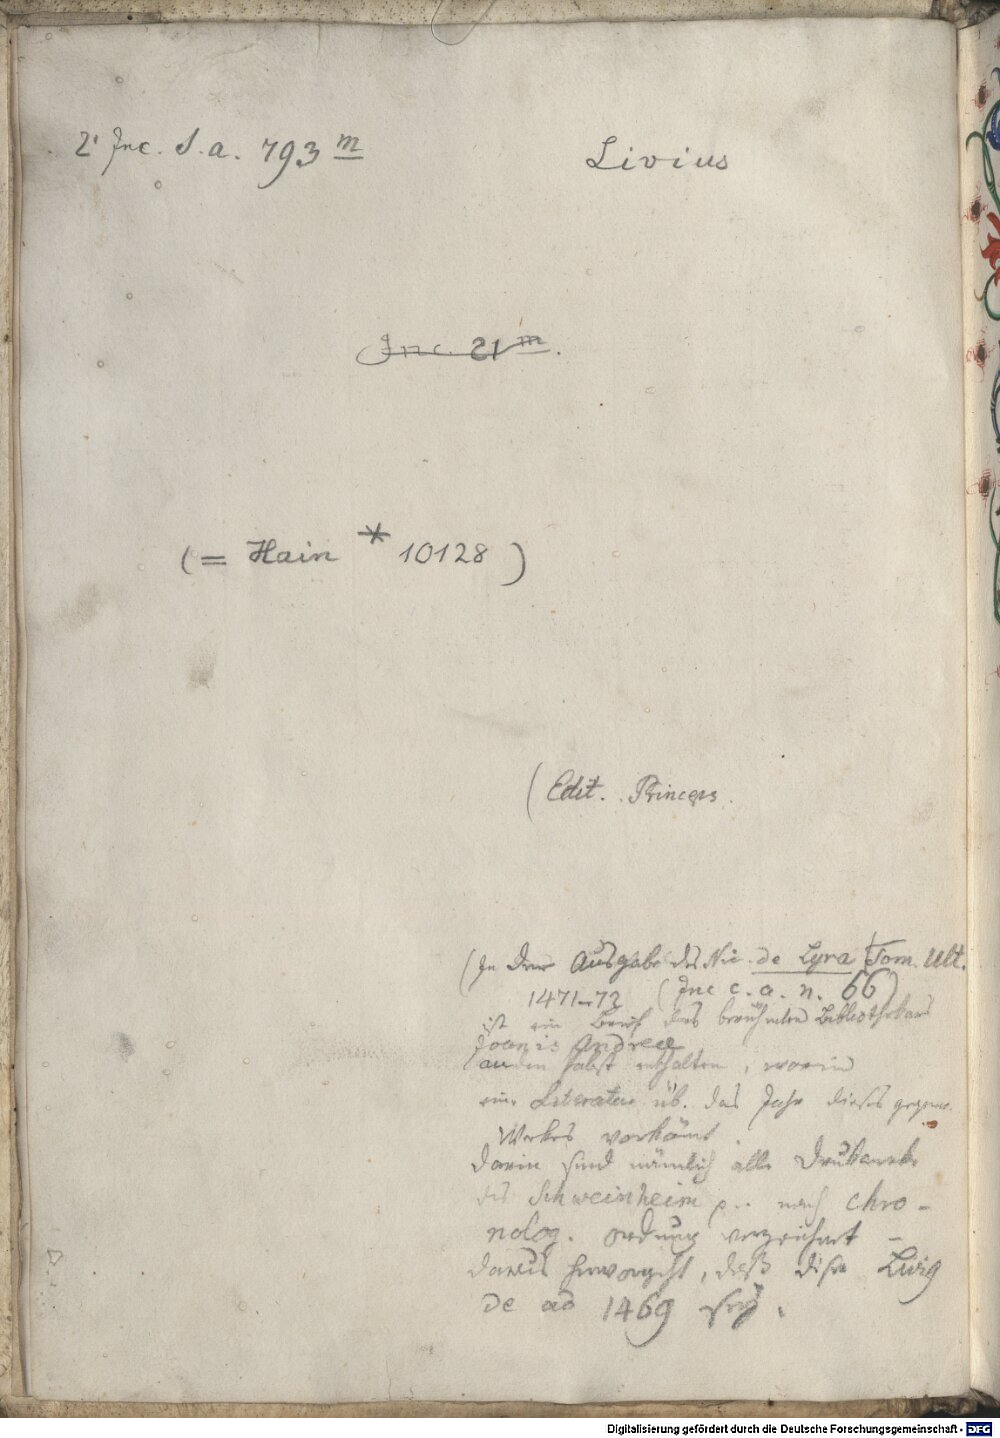 2° Inc. s.a. 793 m
Livius
Inc. 21 m.
(= Hain * 10128 )
(Edit. Princeps.
(In der Ausgabe des Nic. de Lyra Tom. Ult.
1471–72 (Inc c. a. n. 66)
ist ein Brief des berühmten Bibliothekars
Joanis Andreae
an den Pabst enthalten, worin
eine Literatur üb. das Jahr dieses gegenw.
Werkes vorkömt.
Darin sind nämlich alle Druckwerke
des Schweinheim p.. nach chro-
nolog. Ordnung verzeichnet –
daraus hervorgeht, daß diser Livig
de ao 1469 sey.
Digitalisierung gefördert durch die Deutsche Forschungsgemeinschaft - DFG